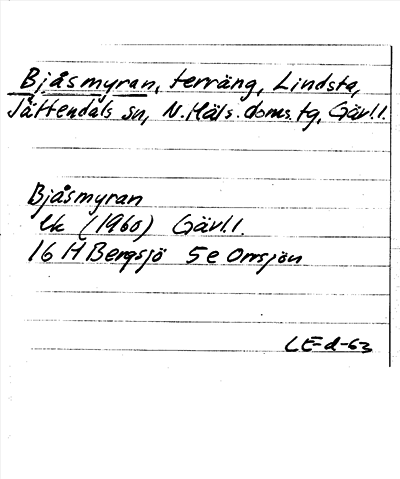 Bjåsmyran, terräng, Lindsta,
Jättendals sn, N. Häls. doms. tg, Gävl.l.
Bjåsmyran
ek (1960) Gävl.l.
16 H Bergsjö 5 e Orrsjön
LE-d-63